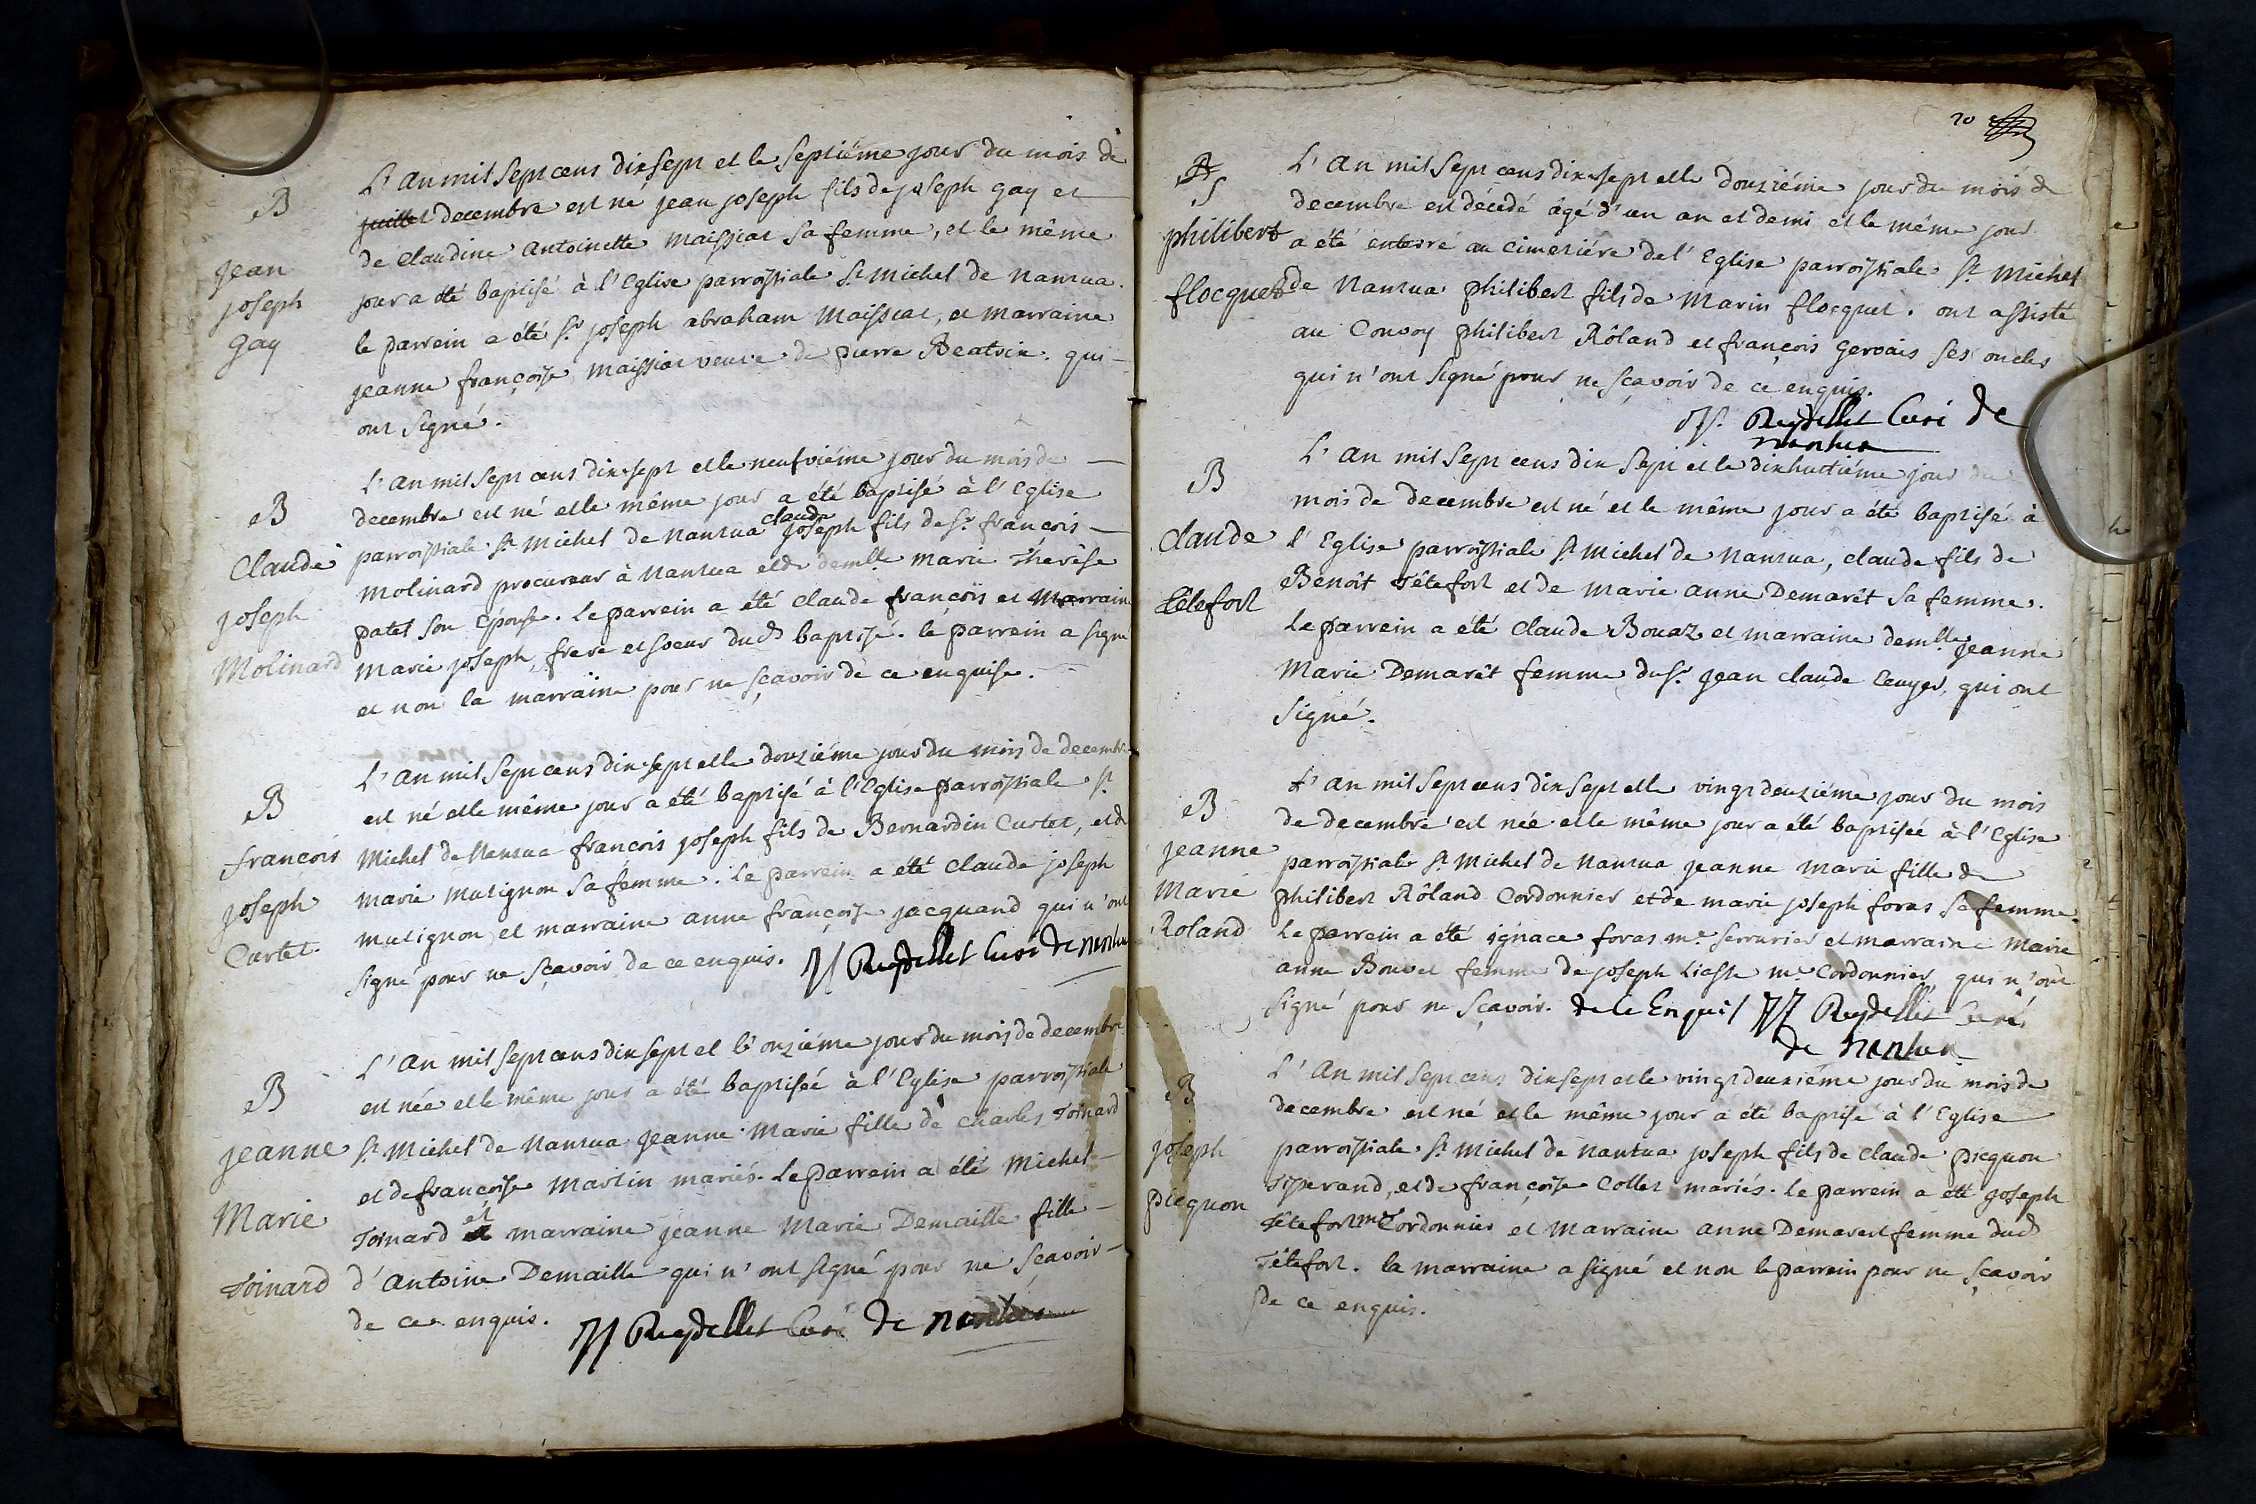 B
Jean
joseph
Gay
L'an mil sept cens dix sept et le septiéme jour du mois de
juillet decembre est né jean joseph fils de joseph gay et
de claudine antoinette maissiat sa femme, et le même
jour a été baptisé à l'Eglise parroissiale St michel de nantua.
le parrein a été Sr joseph abraham maissiat, et marraine
jeanne françoise maissiat veuve de pierre Beatrix. qui
ont signé.
B
Claude
joseph
Molinard
L'an mil sept cens dix sept et le neufviéme jour du mois de
decembre est né et le même jour a été baptisé à l'Eglise
parroissiale St michel de nantua claude joseph fils de Sr françois
molinard procureur à nantua et de demlle marie Thérèse
patel son Epouse. Le parrein a été claude françois et Marraine
marie joseph, frere et soeur dud baptisé. le parrein a signé
et non la marraine pour ne sçavoir de ce enquise.
B
françois
joseph
Curtet.
L'an mil sept cens dix sept et le douziéme jour du mois de decembre
est né et le même jour a été baptisé à l'Eglise parroissiale St
michel de Nantua françois joseph fils de Bernardin Curtet, et de
marie mulignon sa femme. Le parrein a été claude joseph
mulignon et marraine anne françoise jacquand qui n'ont
signé pour ne sçavoir de ce enquis. JJ Reydellet Curé de nantua
B
Jeanne
Marie
Toinard
L'an mil sept cens dix sept et l'onziéme jour du mois de decembre
est née et le même jour a été baptiseé à l'Eglise parroissiale
St michel de Nantua Jeanne Marie fille de charles Toinard
et de françoise Martin mariés. Le parrein a été michel
Toinard et marraine jeanne Marie Demaille fille
d'antoine Demaille qui n'ont signé pour ne sçavoir
de ce enquis. JJ Reydellet Curé de nantua
20
S
philibert
flocquet
L'an mil sept cens dix sept et le douziéme jour du mois de
decembre est décedé âgé d'un an et demi et le même jour
a été enterré au cimetiére de l'Eglise parroissiale St Michel
de Nantua philibert fils de Marin flocquet. ont assisté
au Convoy philibert Rôland et françois gervais ses oncles
qui n'ont signé pour ne sçavoir de ce enquis.
JJ. Reydellet Curé de
nantua
B
Claude
Têtefort
L'an mil sept cens dix sept et le dixhuitiéme jour du
mois de decembre est né et le même jour a été baptisé à
l'Eglise parroissiale St Michel de Nantua, claude fils de
Benoît Têtefort et de marie anne Demarêt sa femme.
Le parrein a été claude Bouaz et marraine demlle Jeanne
Marie Demarêt femme du Sr Jean claude Cuyer, qui ont
signé.
B
jeanne
Marie
Roland
L'an mil sept cens dix sept et le vingt deuziéme jour du mois
de decembre est née et le même jour a été baptiseé à l'Eglise
parroissiale St Michel de Nantua jeanne marie fille de
philibert Rôland Cordonnier et de marie joseph foras sa femme.
Le parrein a été ignace foras me serrurier et marraine marie
anne Bouvet femme de joseph Liasse me Cordonnier, qui n'ont
signé pour ne sçavoir. de Ce Enquis JJ Reydellet Curé
de nantua
B
joseph
picquon
L'an mil sept cens dix sept et le vingt deuxiéme jour du mois de
decembre est né et le même jour a été baptisé à l'Eglise
parroissiale St Michel de Nantua joseph fils de claude picquon
Tisserand, et de françoise Collet mariés. Le parrein a été joseph
Têtefort me Cordonnier et marraine anne Demarest femme dud
Têtefort. la marraine a signé et non le parrein pour ne sçavoir
de ce enquis.